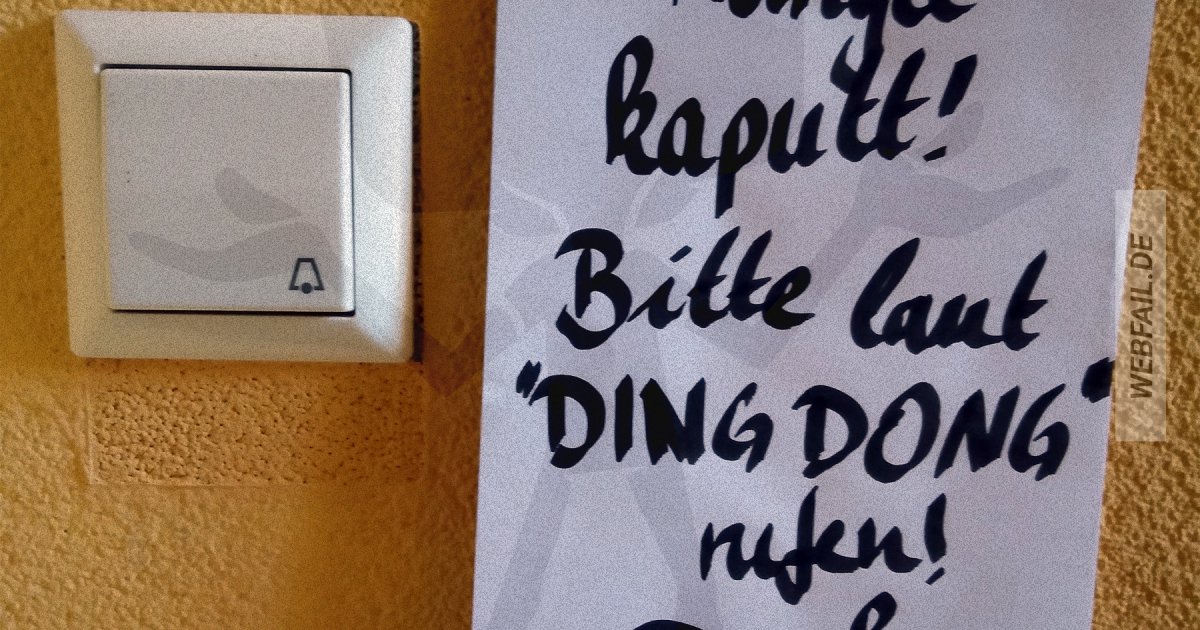 kaputt!
Bitte laut
"DING DONG"
rufen!
WEBFAIL.DE